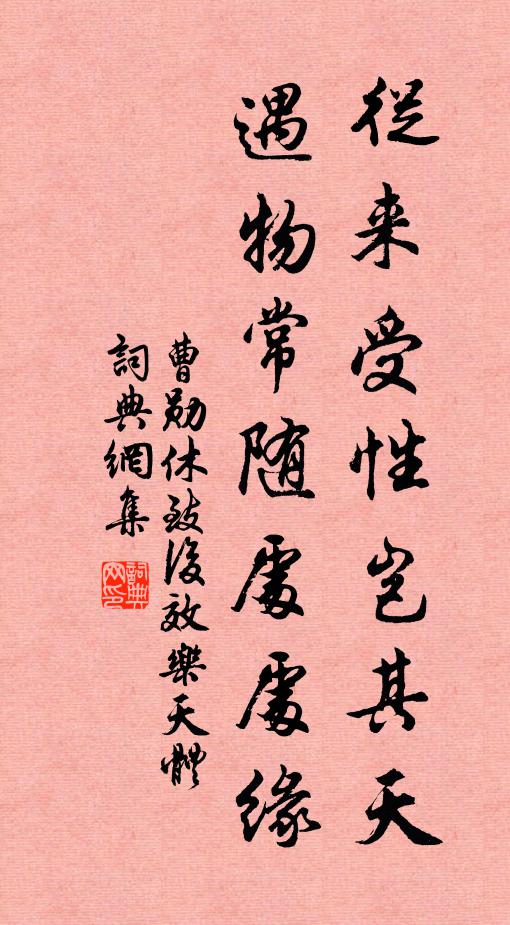 從来受性豈其天
遇物常随處處緣
曹勛休致後效樂天體
詞典網集
詞典网印